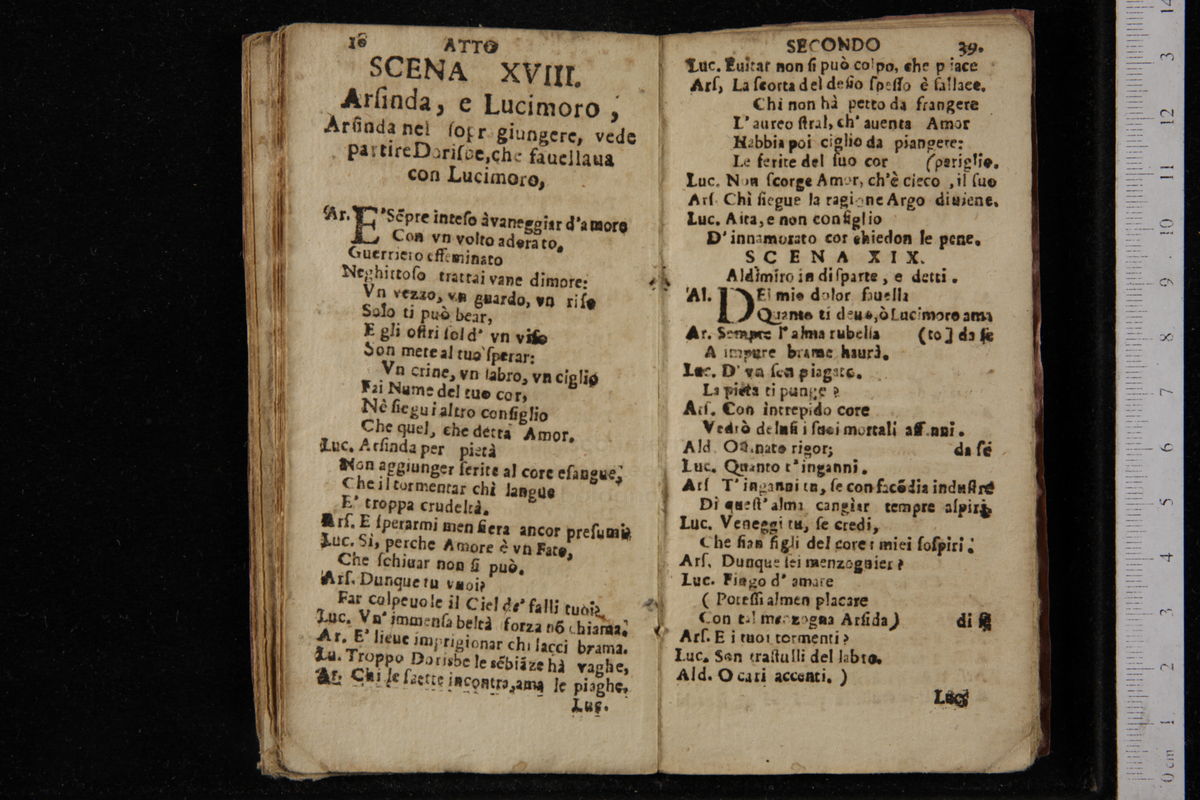 ATTO
SCENA XVIII.
Arſinda, e Lucimoro,
Arſinda nel ſopr giungere, vede
partire Doriſbe, che fauellaua
con Lucimoro,
Ar. E' Sẽpre inteſo à vaneggiar d'amore
Con vn volto adorato.
Guerriero effeminato
Neghittoſo trattai vane dimore:
Vn vezzo, vn guardo, vn riſo
Solo ti può bear,
E gli oſtri ſol d' vn viſo
Son mete al tuo ſperar:
Vn crine, vn labro, vn ciglio
Fai Nume del tuo cor,
Nè ſiegui altro conſiglio
Che quel, che detta Amor.
Luc. Arſinda per pietà
Non aggiunger ferite al core eſangue,
Che il tormentar chì langue
E' troppa crudeltà.
Arſ. E ſperarmi men fiera ancor preſumi?
Luc. Si, perche Amore è vn Fato,
Che ſchiuar non ſi può.
Arſ. Dunque tu vuoi?
Far colpeuole il Ciel de' falli tuoi?
Luc. Vn' immenſa beltà forza nõ chiama.
Ar. E' lieue imprigionar chi lacci brama.
Lu. Troppo Dorisbe le ſẽbiãze hà vaghe,
Ar. Chi le ſaette incontra, ama le piaghe.
Luc.
SECONDO 39.
Luc. Euitar non ſi può colpo, che piace
Arſ, La ſcorta del deſio ſpeſſo è fallace.
Chi non hà petto da frangere
L'aureo ſtral, ch' auenta Amor
Habbia poi ciglio da piangere:
Le ferite del ſuo cor (periglio.
Luc. Non ſcorge Amor, ch'è cieco, il ſuo
Arſ. Chì ſiegue la ragione Argo diuiene.
Luc. Aita, e non conſiglio
D' innamorato cor chiedon le pene.
SCENA XIX.
Aldimiro in diſparte, e detti.
Al. DEl mio dolor fauella
Quanto ti deuo, ò Lucimoro ama
Ar. Sempre l' alma rubella (to] da ſe
A impure brame haurà.
Luc. D' vn ſen piagato.
La pietà ti punge?
Arſ. Con ìntrepido core
Vedrò deluſi i ſuoi mortali affanni.
Ald. Oſtinato rigor; da ſé
Luc. Quanto t' inganni.
Arſ T' inganni tu, ſe con facõdia induſtre
Di queſt' alma cangiar tempre aſpiri,
Luc. Veneggi tu, ſe credi,
Che ſian figli del core i miei ſoſpiri.
Arſ. Dunque ſei menzognier?
Luc. Fingo d' amare
( Poteſſi almen placare
Con tal menzogna Arſida) di ſe
Arſ. E i tuoi tormenti?
Luc. Son traſtulli del labro.
Ald. O cari accenti. )
Luc.